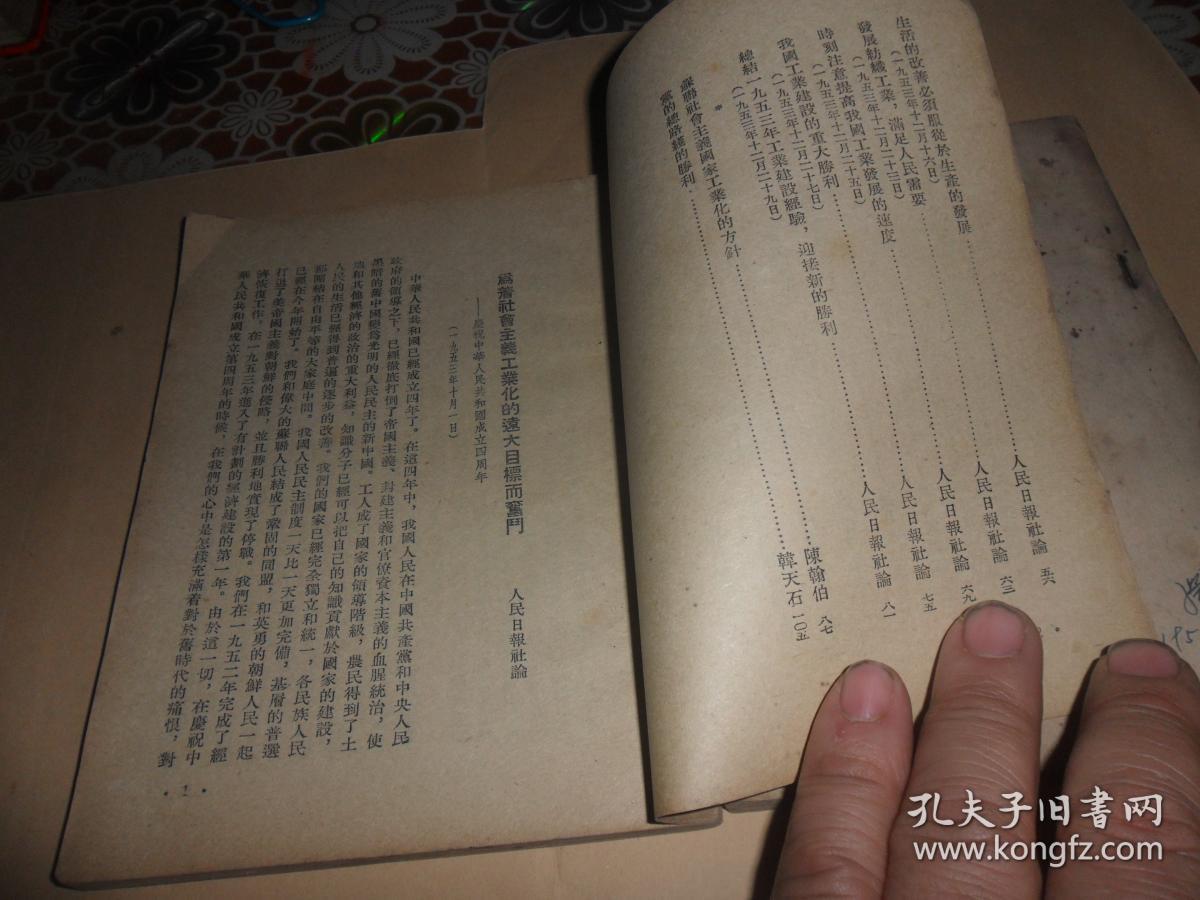 生活的改善必須服從於生產的發展……人民日報社論 五六
(一九五三年十二月十六日)
發展紡織工業,滿足人民需要……人民日報社論 六三
(一九五三年十二月二十三日)
時刻注意提高我國工業發展的速度……人民日報社論 六九
(一九五三年十二月二十五日)
我國工業建設的重大勝利……人民日報社論 七五
(一九五三年十二月二十七日)
總結一九五三年工業建設經驗,迎接新的勝利……人民日報社論 八一
(一九五三年十二月二十九日)
*
蘇聯社會主義國家工業化的方針……陳翰伯 八七
黨的總路綫的勝利……韓天石 一〇五
爲着社會主義工業化的遠大目標而奮鬥
——慶祝中華人民共和國成立四周年
人民日報社論
(一九五三年十月一日)
中華人民共和國已經成立四年了。在這四年中,我國人民在中國共產黨和中央人民
政府的領導之下,已經徹底打倒了帝國主義、封建主義和官僚資本主義的血腥統治,使
黑暗的舊中國變爲光明的人民民主的新中國。工人成了國家的領導階級,農民得到了土
地和其他經濟的政治的重大利益,知識分子已經可以把自己的知識貢獻於國家的建設,
人民的生活已經得到普遍的逐步的改善。我們的國家已經完全獨立和統一,各民族人民
都團結在自由平等的大家庭中間。我國人民民主制度一天比一天更加完備,基層的普選
已經在今年開始了。我們和偉大的蘇聯人民結成了鞏固的同盟,和英勇的朝鮮人民一起
打退了美帝國主義對朝鮮的侵略,並且勝利地實現了停戰。我們在一九五二年完成了經
濟恢復工作,在一九五三年進入了有計劃的經濟建設的第一年。由於這一切,在慶祝中
華人民共和國成立第四周年的時候,在我們的心中是怎樣充滿着對於舊時代的痛恨,對
·1·
195
孔夫子旧书网
www.kongfz.com